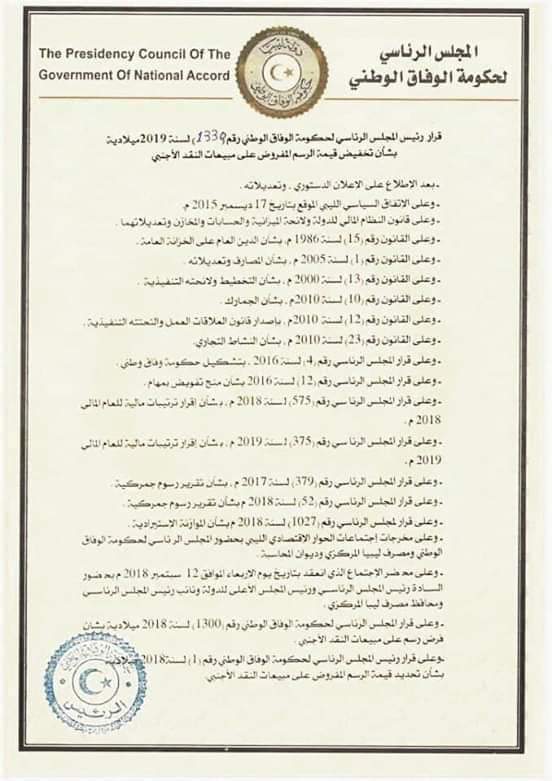 The Presidency Council Of The
Government Of National Accord
المجلس الرئاسي
لحكومة الوفاق الوطني
قرار رئيس المجلس الرئاسي لحكومة الوفاق الوطني رقم (1330) لسنة 2019 ميلادية
بشأن تخفيض قيمة الرسم المفروض على مبيعات النقد الأجنبي
ـ بعد الإطلاع على الاعلان الدستوري . وتعديلاته .
ـ وعلى الإتفاق السياسي الليبي الموقع بتاريخ 17 ديسمبر 2015 م.
ـ وعلى قانون النظام المالي للدولة ولائحة الميزانية والحسابات والمخازن وتعديلاتهما .
ـ وعلى القانون رقم (15) لسنة 1986 م. بشأن الدين العام على الخزانة العامة .
ـ وعلى القانون رقم (1) لسنة 2005 م. بشأن المصارف وتعديلاته .
ـ وعلى القانون رقم (13) لسنة 2000 م. بشأن التخطيط ولائحته التنفيذية .
ـ وعلى القانون رقم (10) لسنة 2010م . بشأن الجمارك .
ـ وعلى القانون رقم (12) لسنة 2010م . بإصدار قانون العلاقات العمل والئحتته التنفيذية .
ـ وعلى القانون رقم (23) لسنة 2010 م. بشأن النشاط التجاري.
ـ وعلى قرار المجلس الرئاسي رقم (4) لسنة 2016 . بتشكيل حكومة وفاق وطني .
ـ وعلى قرار المجلس الرئاسي رقم (12) لسنة 2016 بشأن منح تفويض بمهام .
ـ وعلى قرار المجلس الرئاسي رقم (575) لسنة 2018 م . بشأن إقرار ترتيبات مالية للعام المالي
2018 م .
ـ وعلى قرار المجلس الرئاسي رقم (375) لسنة 2019 م . بشأن إقرار ترتيبات مالية للعام المالي
2019 م .
ـ وعلى قرار المجلس الرئاسي رقم (379) لسنة 2017 م . بشأن تقرير رسوم جمركية .
ـ وعلى قرار المجلس الرئاسي رقم (52) لسنة 2018 م بشأن تقرير رسوم جمركية .
ـ وعلى قرار لمجلس الرئاسي رقم (1027) لسنة 2018 م بشأن الموازنة الاستيرادية .
ـ وعلى مخرجات إجتماعات الحوار الاقتصادي الليبي بحضور المجلس الرئاسي لحكومة الوفاق
الوطني ومصرف ليبيا المركزي وديوان المحاسبة .
ـ وعلى محضر الإجتماع الذي انعقد بتاريخ يوم الاربعاء الموافق 12 سبتمبر 2018 م بحضور
السادة رئيس المجلس الرئاسي ورئيس المجلس الأعلى للدولة ونائب رئيس المجلس الرئاسي
ومحافظ مصرف ليبا المركزي .
ـ وعلى قرار المجلس الرئاسي لحكومة الوفاق الوطني رقم (1300) لسنة 2018 ميلادية بشان
فرض رسم على مبيعات النقد الأجنبي .
ـوعلى قرار رئيس المجلس الرئاسي لحكومة الوفاق الوطني رقم (1) لسنة2018 ميلادية
بشأن تحديد قيمة الرسم المفروض على مبيعات النقد الأجنبي.
الرئيس